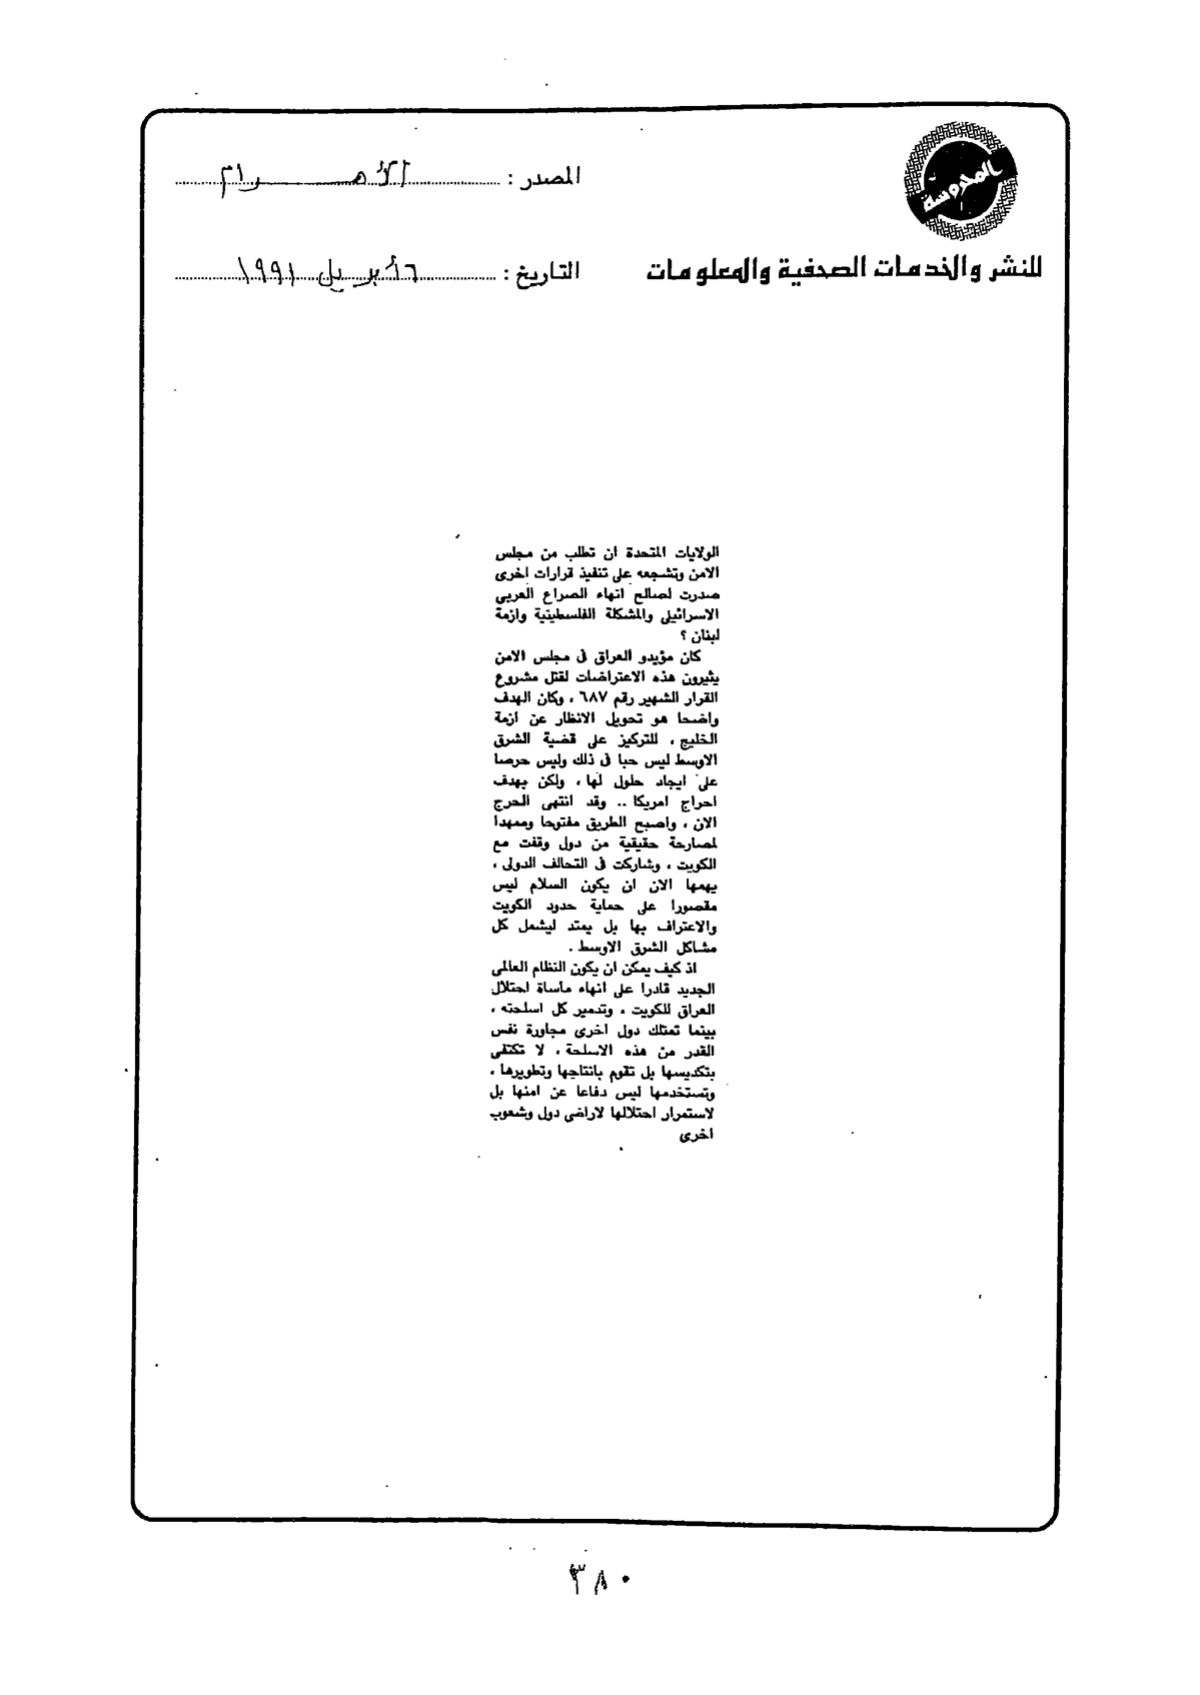 المحروسة
للنشر والخدمات الصحفية والمعلومات
المصدر : الأهرام
التاريخ : ٦ أبريل ١٩٩١
الولايات المتحدة ان تطلب من مجلس
الامن وتشجعه على تنفيذ قرارات اخرى
صدرت لصالح انهاء الصراع العربى
الاسرائيلى والمشكلة الفلسطينية وازمة
لبنان ؟
كان مؤيدو العراق فى مجلس الامن
يثيرون هذه الاعتراضات لقتل مشروع
القرار الشهير رقم ٦٨٧ ، وكان الهدف
واضحا هو تحويل الانظار عن ازمة
الخليج ، للتركيز على قضية الشرق
الاوسط ليس حبا فى ذلك وليس حرصا
على ايجاد حلول لها ، ولكن بهدف
احراج امريكا .. وقد انتهى الحرج
الان ، واصبح الطريق مفتوحا وممهدا
لمصارحة حقيقية من دول وقفت مع
الكويت ، وشاركت فى التحالف الدولى ،
يهمها الان ان يكون السلام ليس
مقصورا على حماية حدود الكويت
والاعتراف بها بل يمتد ليشمل كل
مشاكل الشرق الاوسط .
اذ كيف يمكن ان يكون النظام العالمى
الجديد قادرا على انهاء مأساة احتلال
العراق للكويت ، وتدمير كل اسلحته ،
بينما تمتلك دول اخرى مجاورة نفس
القدر من هذه الاسلحة ، لا تكتفى
بتكديسها بل تقوم بانتاجها وتطويرها ،
وتستخدمها ليس دفاعا عن امنها بل
لاستمرار احتلالها لاراضى دول وشعوب
اخرى
٣٨٠